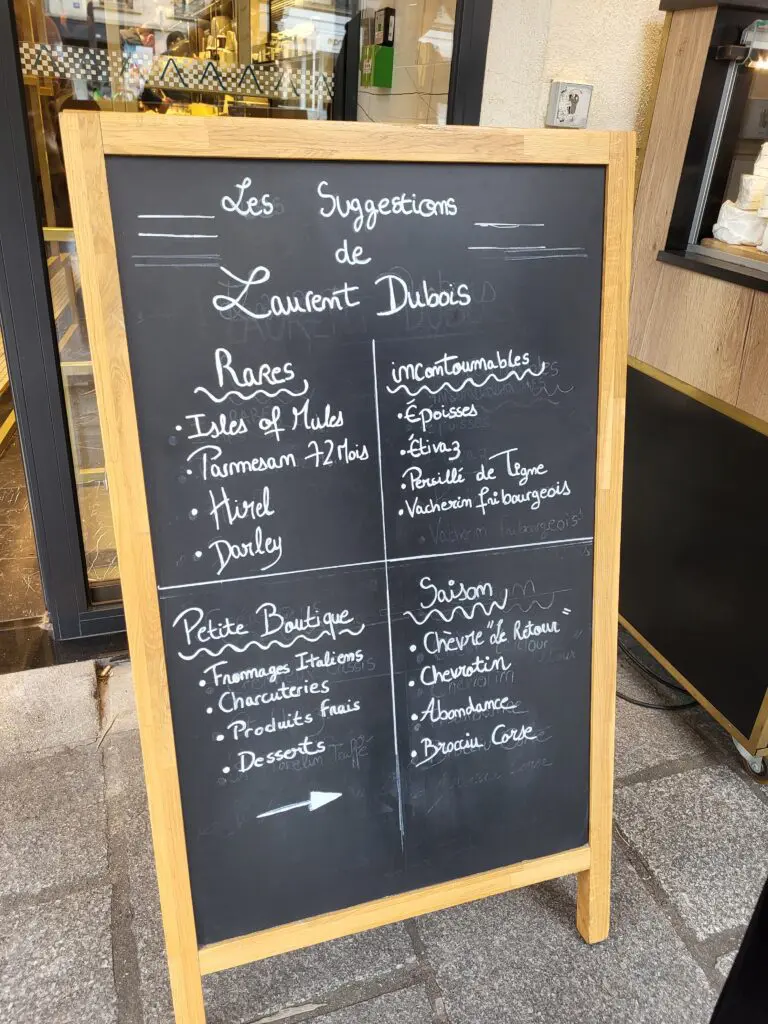 Les Suggestions
de
Laurent Dubois
Rares
• Isles of Mules
• Parmesan 72 Mois
• Hirel
• Darley
incontournables
• Époisses
• Étivaz
• Persillé de Tigne
• Vacherin fribourgeois
Petite Boutique
• Fromages Italiens
• Charcuteries
• Produits frais
• Desserts
Saison
• Chèvre "Le Retour"
• Chevrotin
• Abondance
• Brocciu Corse